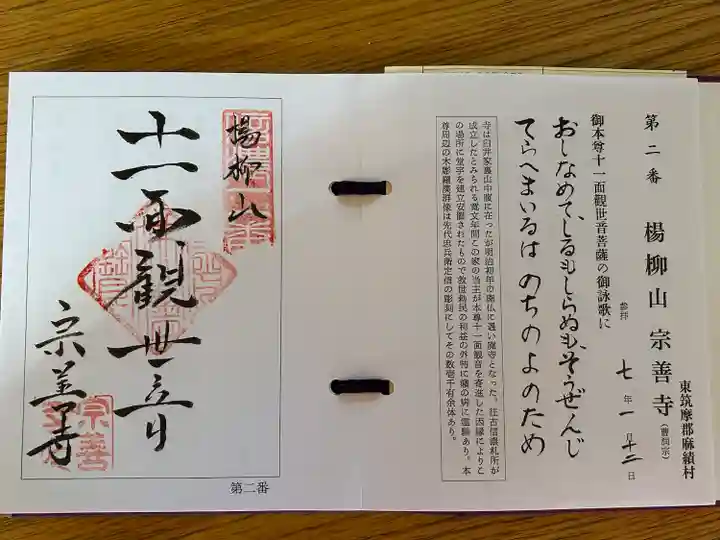 東筑摩郡麻績村
第二番　楊柳山　宗善寺（曹洞宗）
参拝　七年一月十二日
御本尊十一面観世音菩薩の御詠歌に
おしなめて、しるもしらぬも、そうぜんじ
てらへまいるは のちのよのため
寺は臼井家裏山中腹に在ったが明治初年の廃仏に遇い廃寺となった。往古信濃札所が
成立したとみられる寛文年間この家の当主が本尊十一面観音を寄進した因縁によりこ
の場所に堂宇を建立安置されたもので救世済民の利益の外特に
尊周辺の木彫羅漢群像は先代忠兵衛定信の彫刻にしてその数壱千有余体あり。
楊柳山
十一面観世音
宗善寺
第二番